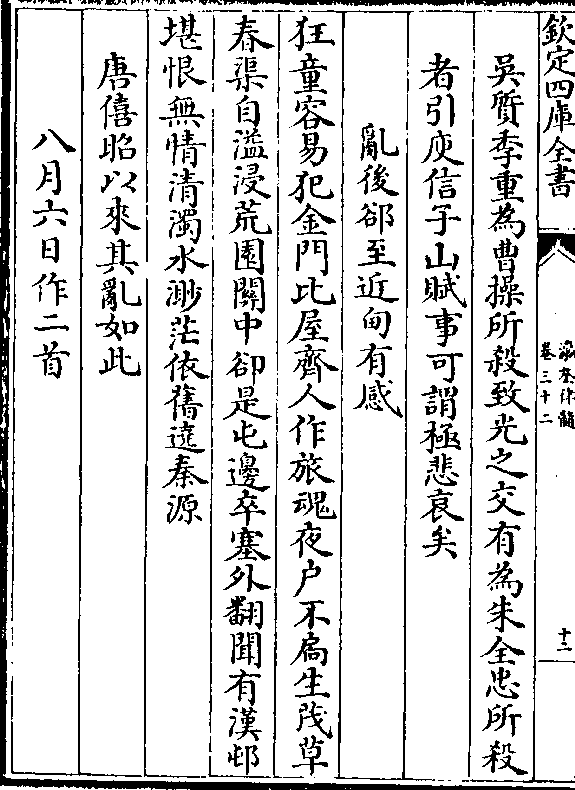 欽定四庫全書
瀛奎律髓
卷三十二
十二
吳質季重為曹操所殺致光之交有為朱全忠所殺
者引庾信子山賦事可謂極悲哀矣
亂後郤至近甸有感
狂童容易犯金門比屋齊人作旅魂夜户不扃生茂草
春渠自溢浸荒園關中卻是屯邊卒塞外翻聞有漢邨
堪恨無情清濁水渺茫依舊遶秦源
唐僖昭以來其亂如此
八月六日作二首